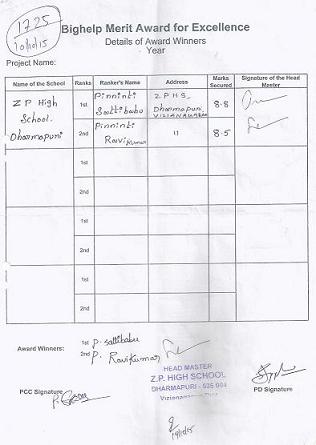 1725
10/10/15
Bighelp Merit Award for Excellence
Details of Award Winners
Year
Project Name:
Name of the School Ranks Ranker's Name Address Marks Secured Signature of the Head Master
Z P High School. Dharmapuri 1st Pinninti Sattibabu Z P H S, Dharmapuri, VIZIANAGARAM 8.8
2nd Pinninti Ravi Kumar 11 8.5
1st
2nd
1st
2nd
1st
2nd
Award Winners: 1st P. Sattibabu
2nd P. Ravikumar
HEAD MASTER
Z.P. HIGH SCHOOL
DHARMAPURI - 535 004
PCC Signature PD Signature